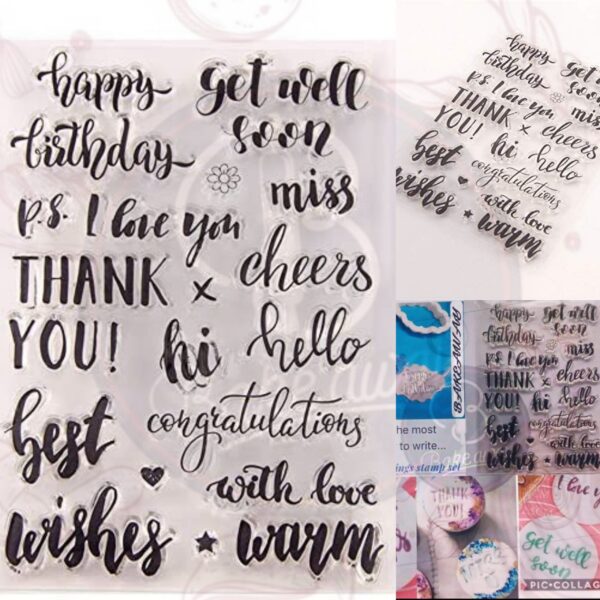 happy
birthday
get well
soon
miss
p.s. I love you
THANK x
YOU!
cheers
hi
hello
best
wishes
congratulations
with love
warm
happy
birthday
get
soo
p.s. I love you
miss
THANK x
YOU!
cheers
hi hello
best
wishes
congratulations
with love
warm
happy
birthday
get well
soon
p.s. I love you
miss
THANK x
YOU!
cheers
hi hello
best
wishes
congratulations
with love
warm
the most
to write...
ings stamp set
THANK
YOU!
I love you
Get well
soon
PIC•COLLAG